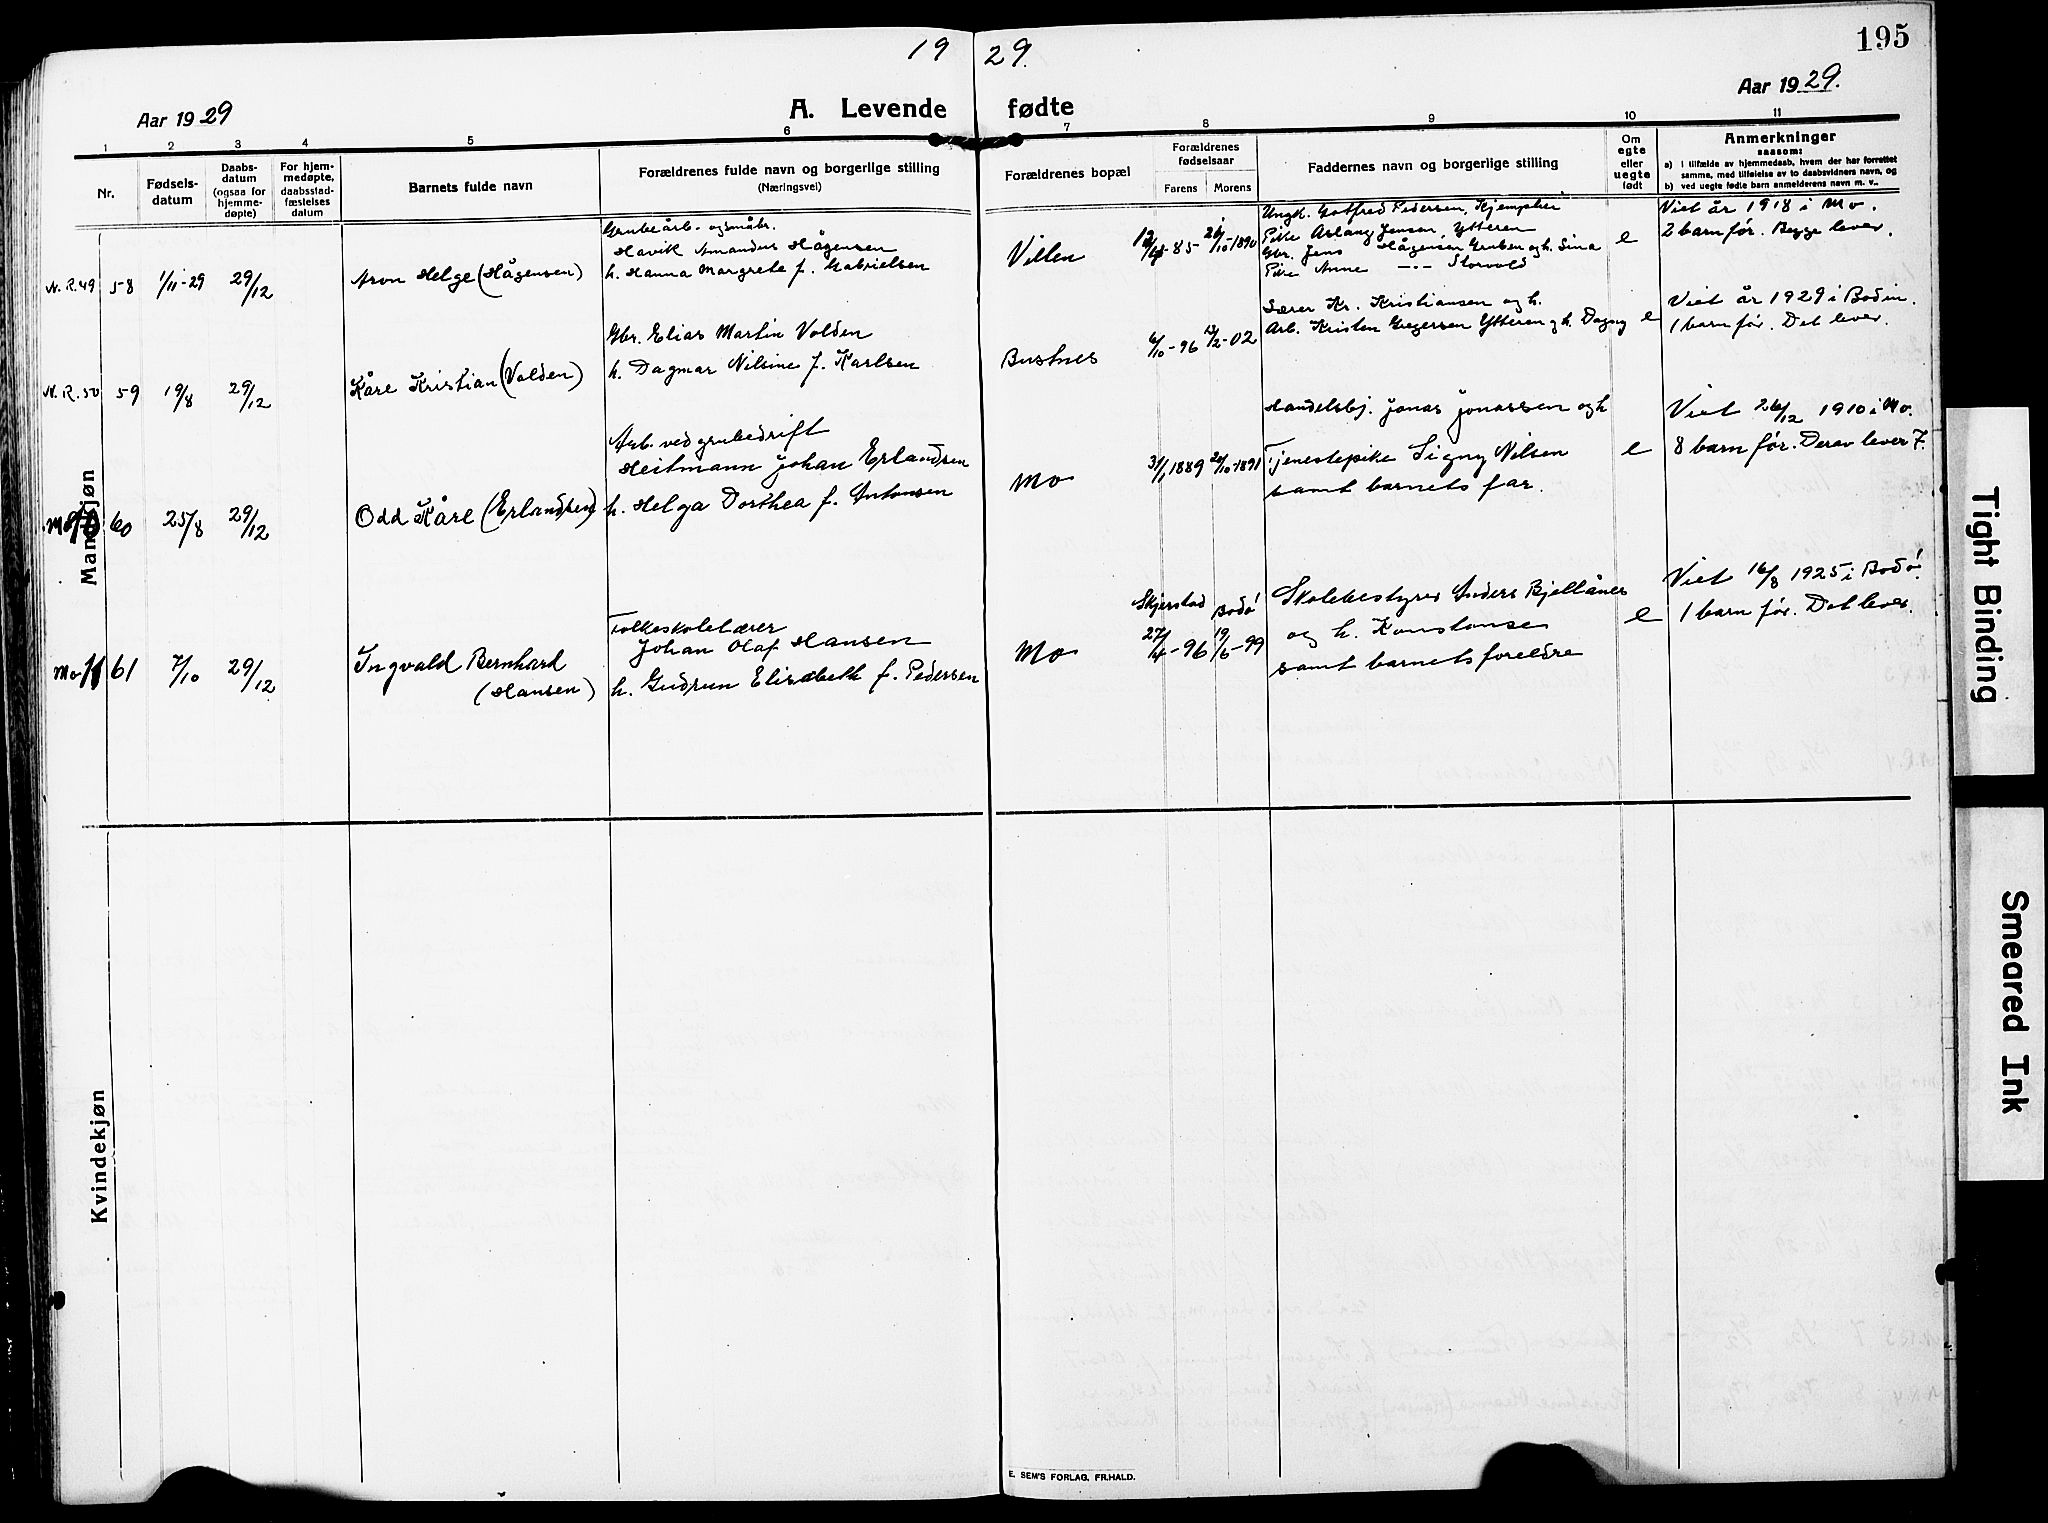 19 29.
195
Aar 1929
A. Levende fødte
Aar 1929.
1 2 3 4 5 6 7 8 9 10 11
Nr.
Fødsels-
datum
Daabs-
datum
(ogsaa for
hjemme-
døpte)
For hjem-
medøpte,
daabsstad-
fæstelses
datum
Barnets fulde navn
Forældrenes fulde navn og borgerlige stilling
(Næringsvei)
Forældrenes bopæl
Forældrenes
fødselsaar
Farens Morens
Faddernes navn og borgerlige stilling
Om
egte
eller
uegte
født
Anmerkninger
saasom:
a) i tilfælde av hjemmedaab, hvem der har forrettet
samme, med tilføielse av to daabsvidners navn, og
b) ved uegte fødte barn anmelderens navn m. v..
Mandkjøn
N.R. 49 58 1/11-29 29/12
Aron Helge (Hågensen)
Grubearb. og småbr.
Havik Amandus Hågensen
h. Hanna Margrete f. Gabrielsen
Villen
26/10-1890
Ungk. Gotfred Pedersen, Kjemplier
Pike Aslaug Jensen, Ytteren
Gbr. Jens Hågensen Gruben og h. Sina
Pike Anne -"- Storvold
e
Viet år 1918 i Mo.
2 barn før. Begge lever.
N.R. 50 59 19/8 29/12
Kåre Kristian (Volden)
Gbr. Elias Martin Volden
h. Dagmar Nilsine f. Karlsen
Bustnes
6/10-96 13/2-02
Lærer Kr. Kristiansen og h.
Arb. Kristen Gregersen Ytteren og h. Dagny
e
Viet år 1929 i Bodin.
1 barn før. Det lever.
60 25/8 29/12
Odd Kåre (Erlandsen)
Arb. ved grubedrift
Heitmann Johan Erlandsen
h. Helga Dorthea f. Antonsen
Mo
31/1 1889 20/10-1891
Handelsbj. Jonas Jonassen og h
Tjenestepike Signy Nilsen
samt barnets far.
e
Viet 26/12 1910 i Mo.
8 barn før. Derav lever 7.
Mo 11 61 7/10 29/12
Ingvald Bernhard
(Hansen)
Folkeskolelærer
Johan Olaf Hansen
h. Gudrun Elisabeth f. Pedersen
Mo
Skjerstad Bodø
27/4-96 19/6-99
Skolebestyrer Anders Bjellånes
og h. Konstanse
samt barnets foreldre
e
Viet 16/8 1925 i Bodø.
1 barn før. Det lever.
Kvindekjøn
E. SEM'S FORLAG, FR.HALD.
Tight Binding
Smeared Ink